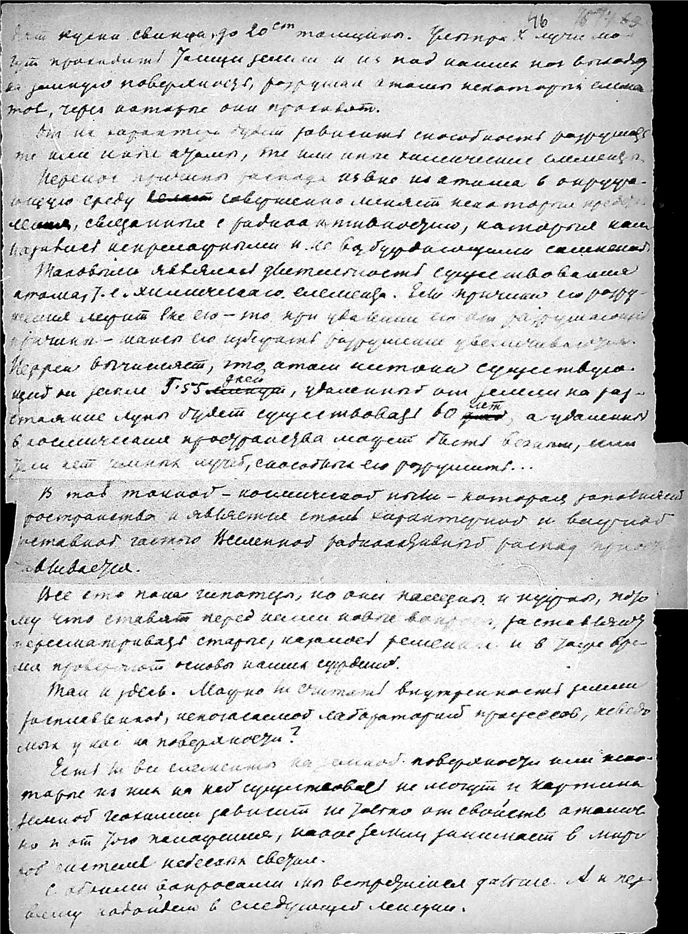 46
куски свинца, до 20 ст толщины. лучи мо-
гут проходить толщи земли и из под наших ног выходя
на земную поверхность, разрушая атомы некоторых элемен-
тов, через которые они проходят.
От их характера будет зависеть способность разрушать
те или иные атомы, те или иные химические элементы.
Перенос причины распада извне из атома в окружа-
ющую среду совершенно меняет некоторые
связанные с радиоактивностью, которые нам
казались непреложными и не возбуждающими сомнений.
Таковыми являлась длительность существования
атома, т.е. химического элемента. Если причина его разру-
шения лежит вне его – то при удалении его от разрушающей
причины – шансы его избежать разрушение увеличиваются.
Перрен вычисляет, что, атом иетона существую-
щий на земле 1.55 дней, удаленный от земли на рас-
стояние луны будет существовать 60 лет, а удаленный
в космические пространства может быть вечным, если
там нет земных лучей, способных его разрушить...
В той тонкой – космической пыли – которая заполняет
пространство и является столь характерной и важной
составной частью Вселенной радиоактивный распад
Все это пока гипотезы, но они нацелены и нужны, пото-
му что ставят перед нами новые вопросы, заставляют
пересматривать старые, казалось решенные и в тоже вре-
мя проверяют основы наших суждений.
Так и здесь. Можно ли считать внутренность земли
расплавленной, непогасаемой лабораторией процессов, неведо-
мых у нас на поверхности?
Есть ли все элементы на земной поверхности или неко-
торые из них на ней существовать не могут и картина
земной геохимии зависит не только от свойств атомов
но и от того положения, какое Земля занимает в миро-
вой системе небесных светил.
С обоими вопросами мы встретимся дальше. А к пер-
вому подойдем в следующей лекции.